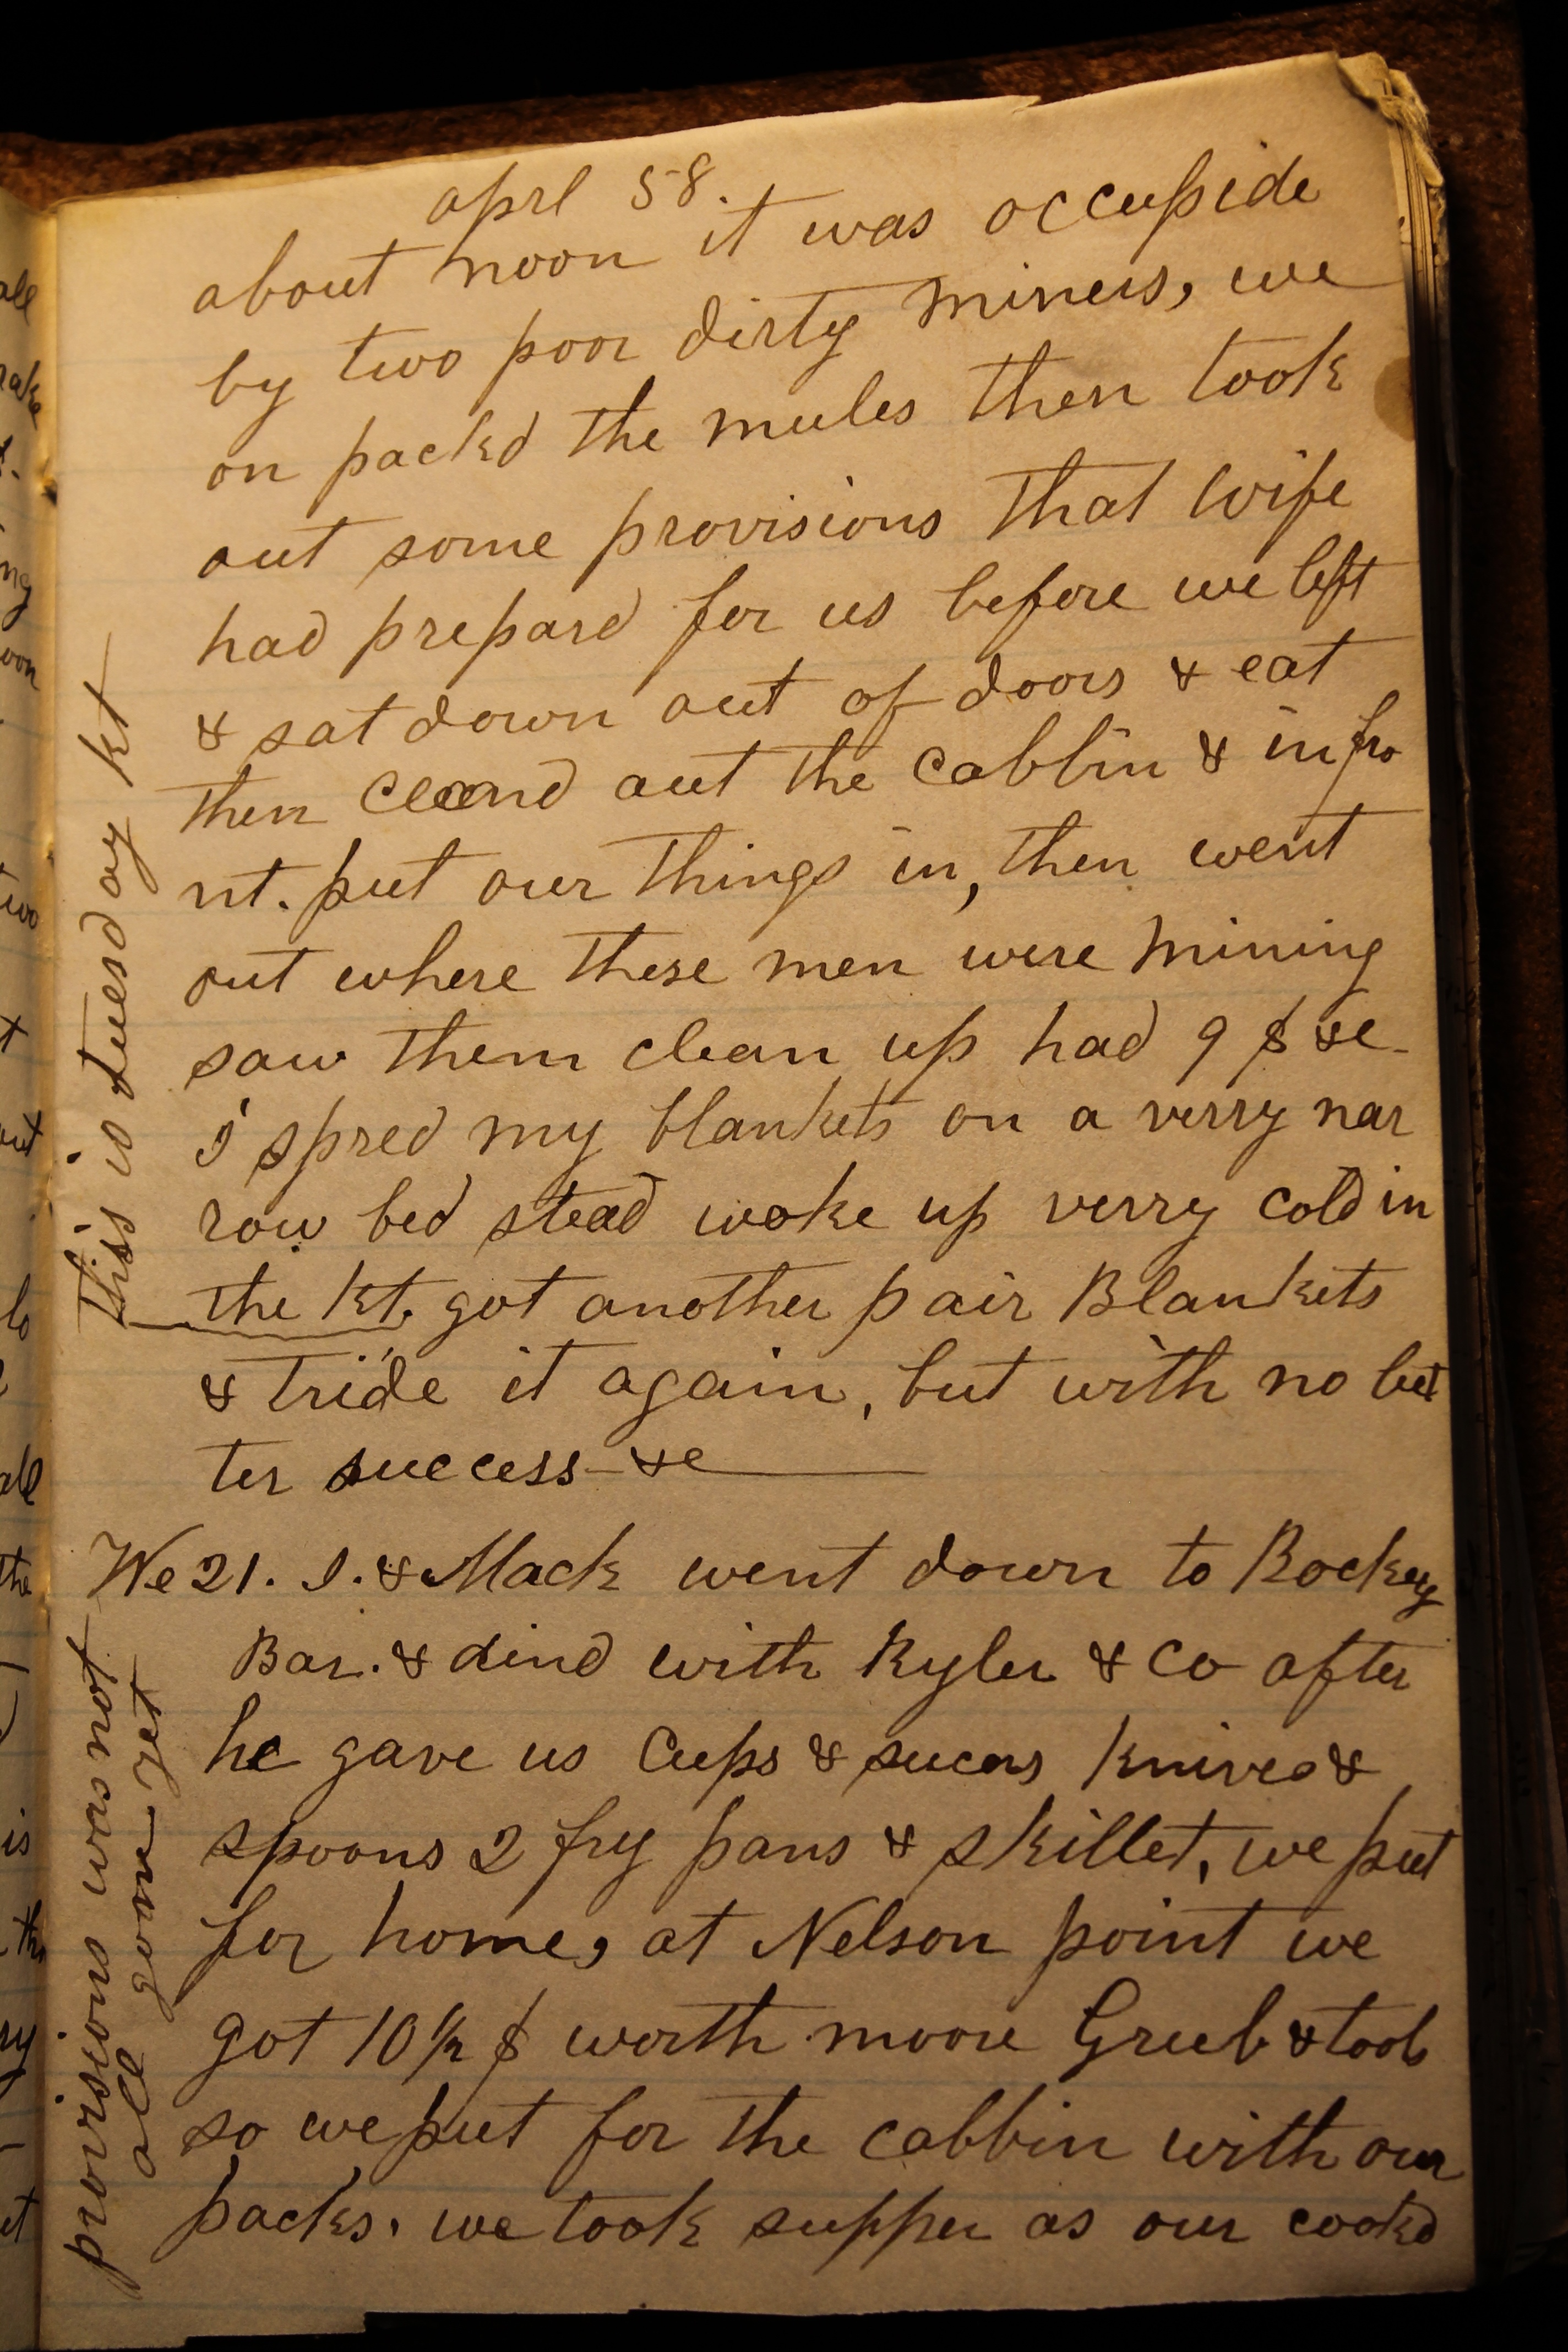 aprl 58.
about noon it was occupide
by two poor dirty miners, we
on packd the mules then took
out some provisions that wife
had prepard for us before we left
& sat down out of doors & eat
then cleand out the cabbin & in fro
nt. put our things in, then went
out where these men were mining
saw them clean up had 9 $ &c-
i spred my blankets on a verry nar
row bed stead woke up verry cold in
the kt. got another pair Blankets
& tride it again, but with no bet
ter success-&c
We 21. I. & Mack went down to Rockey
Bar. & dind with Ryler & Co after
he gave us Cups & sucers knives &
spoons 2 fry pans & skillet, we put
for home, at Nelson point we
got 10 1/2 $ worth moore Grub & tools
so we put for the cabbin with our
packs. we took supper as our cookd
This is tuesday kt
provisions was not
all gone yet